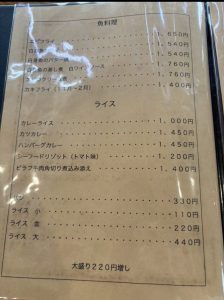 魚料理
エビフライ ・・・ 1,650円
1,540円
バター焼 ・・・ 1,540円
白ワインソース ・・・ 1,760円
1,760円
カキフライ(11月~2月) ・・・ 1,400円
ライス
カレーライス ・・・ 1,000円
カツカレー ・・・ 1,450円
ハンバーグカレー ・・・ 1,450円
シーフードリゾット(トマト味) ・・・ 1,200円
ピラフ牛肉角切り煮込み添え ・・・ 1,400円
パン ・・・ 330円
ライス 小 ・・・ 110円
ライス 並 ・・・ 220円
ライス 大 ・・・ 440円
大盛り220円増し